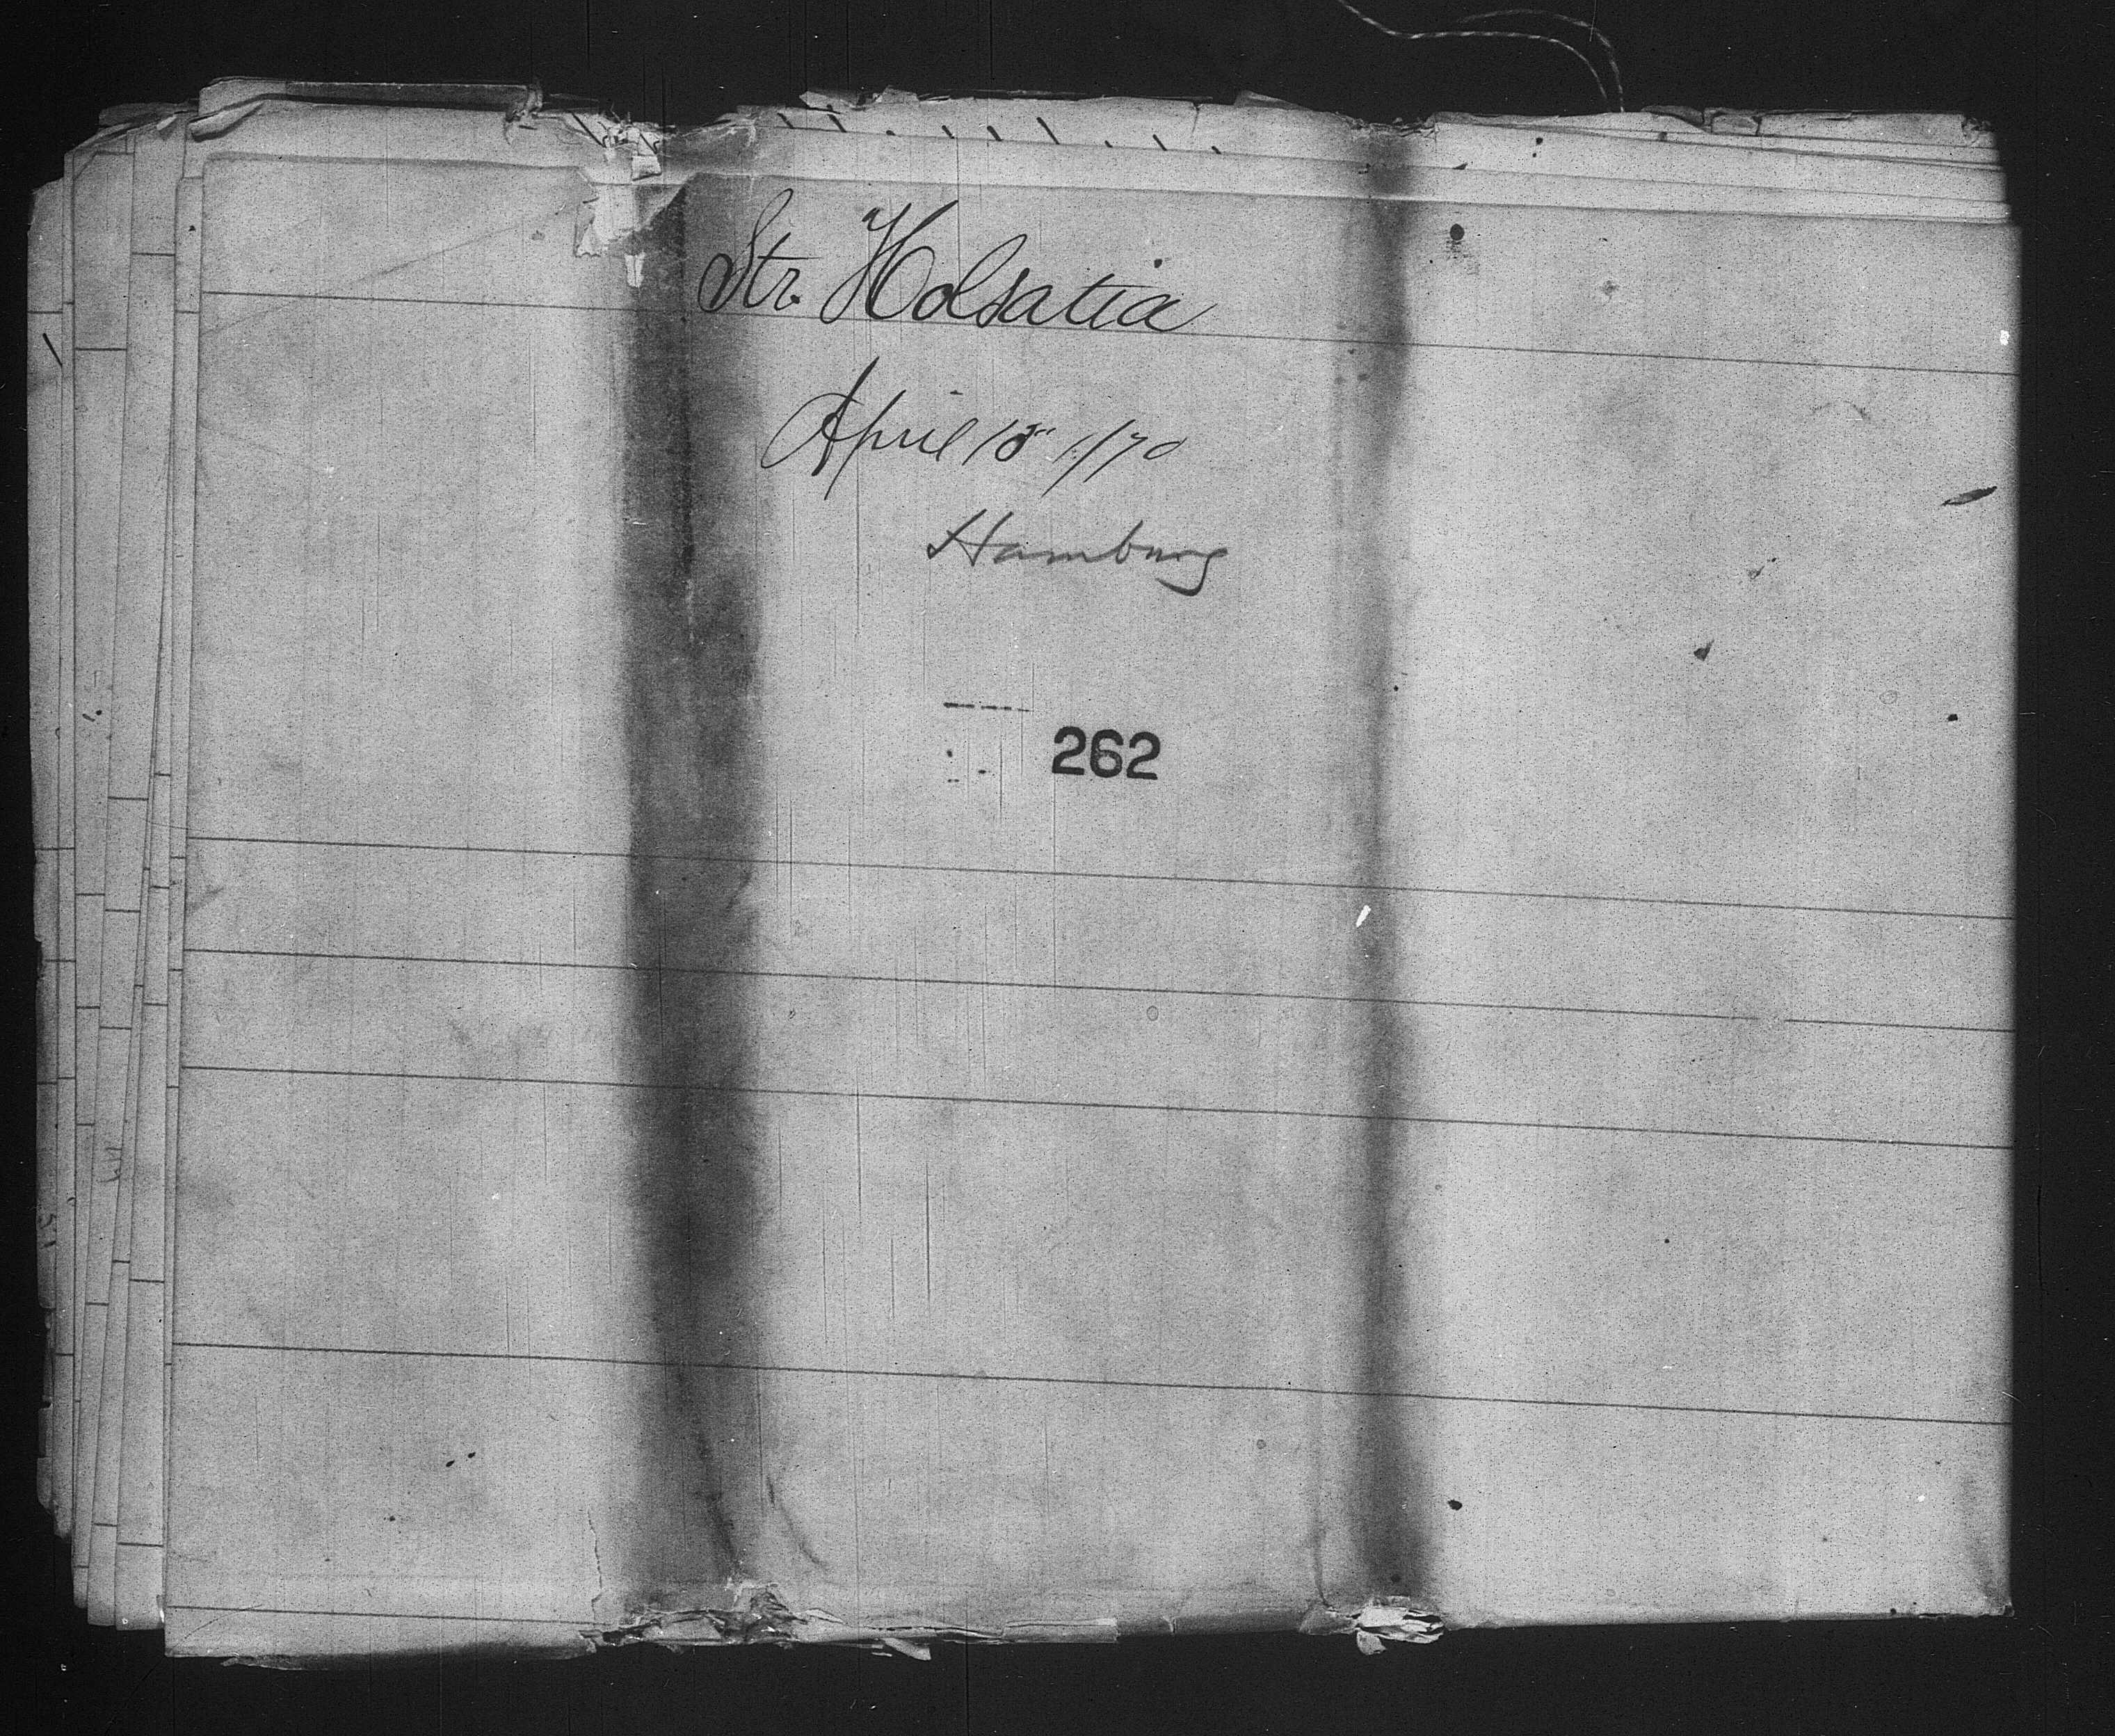 Str. Holsatia
April
Hamburg
262